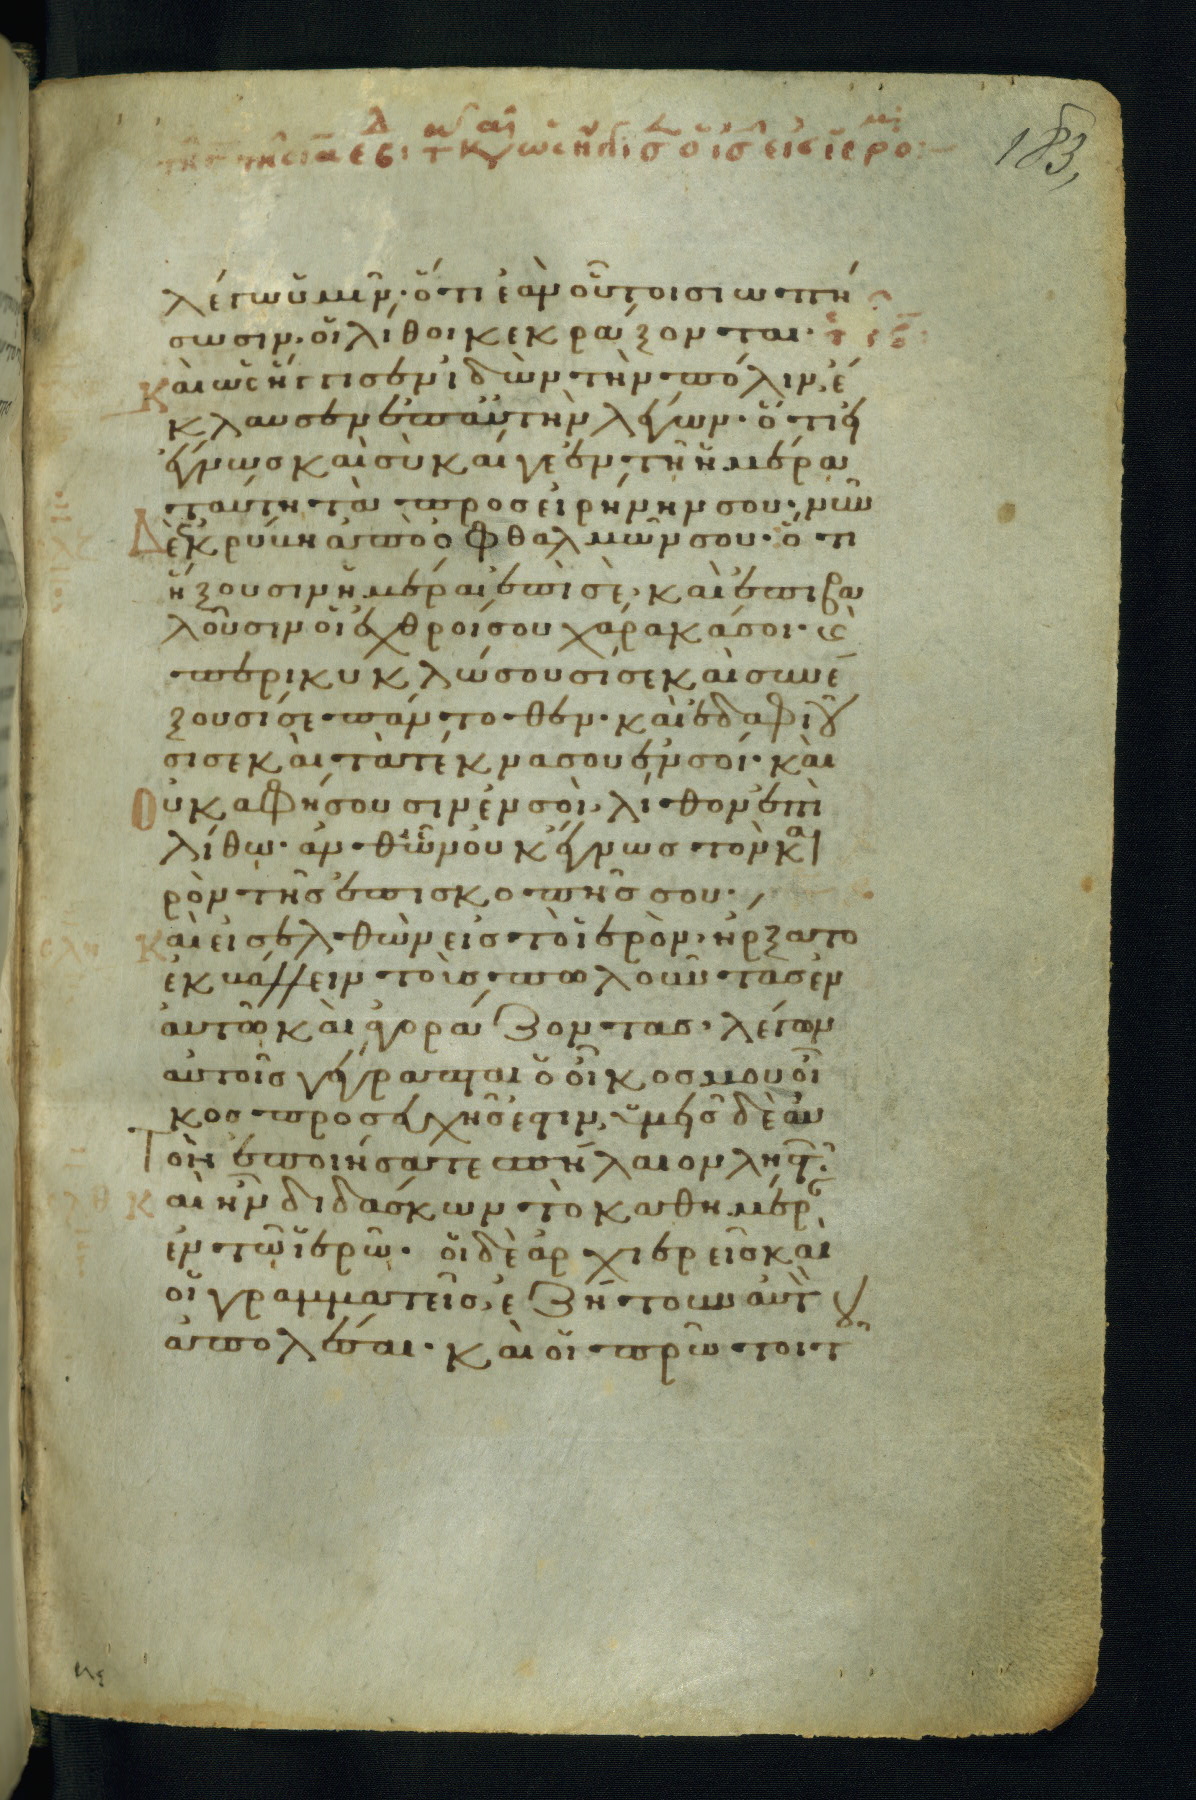 183,
λέγω ὑμῖν· ὅτι ἐὰν οὗτοι σιωπή
σωσιν· οἱ λίθοι κεκράξονται·
Καὶ ὡς ἤγγισεν ἰδὼν τὴν πόλιν, ἔ
κλαυσεν ἐπ' αὐτὴν λέγων· ὅτι εἰ
ἔγνως καὶ σὺ καί γε ἐν τῇ ἡμέρα
ταύτη τὰ πρὸς εἰρήνην σου· νῦν
Δὲ ἐκρύβη ἀπὸ ὀφθαλμῶν σου· ὅτι
ἥξουσιν ἡμέραι ἐπὶ σὲ, καὶ ἐπιβα
λοῦσιν οἱ ἐχθροί σου χάρακά σοι· κ(αὶ)
περικυκλώσουσί σε καὶ συνέ
ξουσί σε πάντοθεν· καὶ ἐδαφιοῦ
σί σε καὶ τὰ τέκνα σου ἐν σοί· καὶ
Οὐκ ἀφήσουσιν ἐν σοὶ, λίθον ἐπὶ
λίθῳ· ἀνθ' ὧν οὐκ ἔγνως τὸν και
ρὸν τῆς ἐπισκοπῆς σου·
Καὶ εἰσελθὼν εἰς τὸ ἱερὸν, ἤρξατο
ἐκβάλλειν τοὺς πωλοῦντας ἐν
αὐτῶ καὶ ἀγοράζοντας, λέγων
αὐτοῖς γέγραπται ὁ οἶκος μου οἶ
κος προσευχῆς ἐστιν, ὑμεῖς δὲ αὐ
Τὸν ἐποιήσατε σπήλαιον ληστ(ῶν)·
Καὶ ἦν διδάσκων τὸ καθημέρ(αν)
ἐν τῷ ἱερῷ· οἱ δὲ ἀρχιερεῖς καὶ
οἱ γραμματεῖς, ἐζήτουν αὐτ(ὸν)
ἀπολέσαι· καὶ οἱ πρῶτοι τοῦ